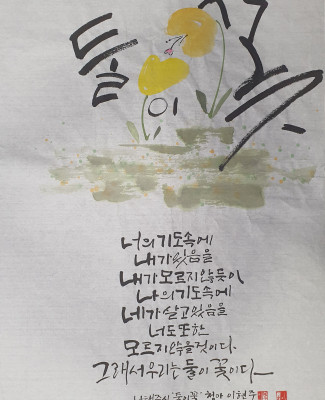 둘이 꽃
너의 기도속에
내가 있음을
내가 모르지 않듯이
나의 기도속에
네가 살고 있음을
너도 또한
모르지 않을 것이다.
그래서 우리는 둘이 꽃이다
이현주